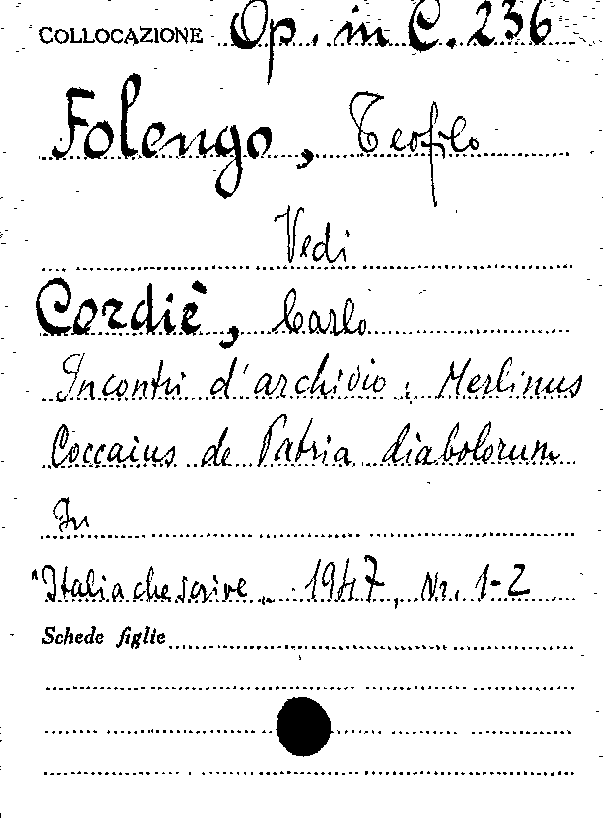 COLLOCAZIONE Op. in C. 236
Folengo, Teofilo
Vedi
Cordiè, Carlo
Incontri d'archivio: Merlinus
Coccaius de Patria diabolorum
In
"Italia che scrive" 1947, Nr. 1-2
Schede figlie